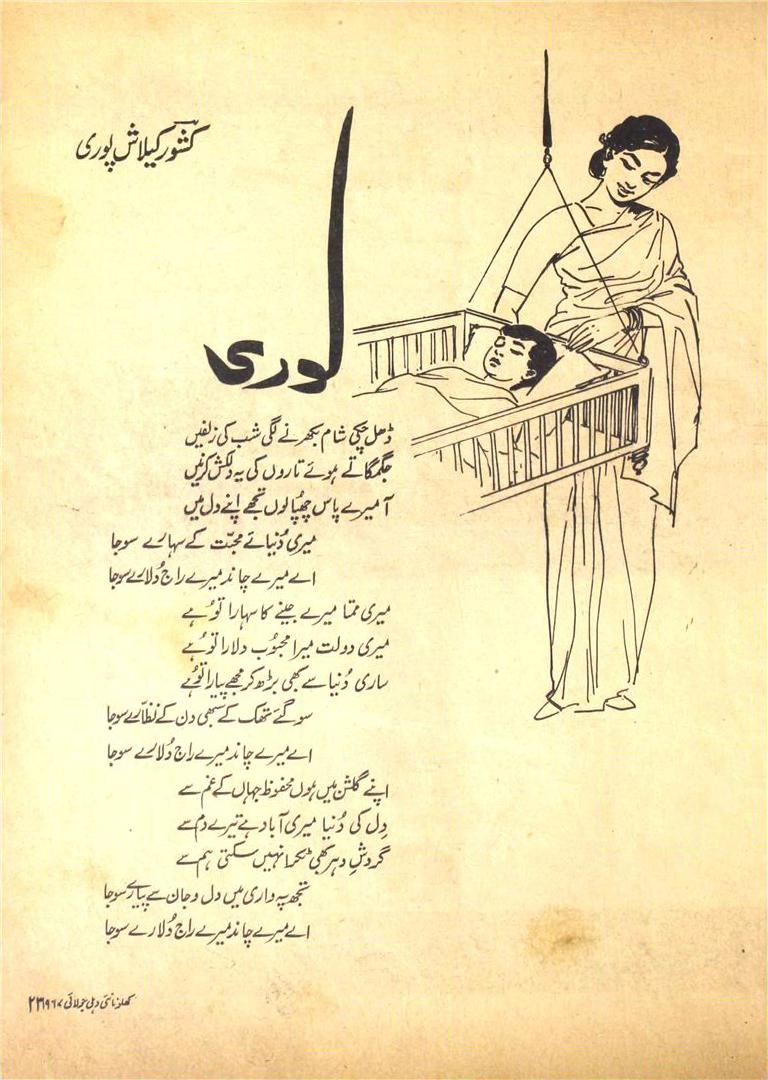 کشور کیلاش پوری
لوری
ڈھل چکی شام بکھرنے لگی شب کی زلفیں
جگمگاتے ہوئے تاروں کی یہ دلکش کرنیں
آ میرے پاس چھپا لوں تجھے اپنے دل میں
میری دُنیائے محبّت کے سہارے سوجا
اے میرے چاند میرے راج دُلارے سوجا
میری ممتا میرے جینے کا سہارا تُو ہے
میری دولت میرا محبُوب دلارا تُو ہے
ساری دُنیا سے بھی بڑھ کر مجھے پیارا تُو ہے
سو گئے تھک کے سبھی دن کے نظّارے سوجا
اے میرے چاند میرے راج دُلارے سوجا
اپنے گلشن میں ہوں محفوظ جہاں کے غم سے
دِل کی دُنیا میری آباد ہے تیرے دم سے
گردشِ دہر بھی ٹکرا نہیں سکتی ہم سے
تجھ پہ واری میں دل و جان سے پیارے سوجا
اے میرے چاند میرے راج دُلارے سوجا
کھلونا نئی دہلی جولائی ۱۹۶۷ ۲۳